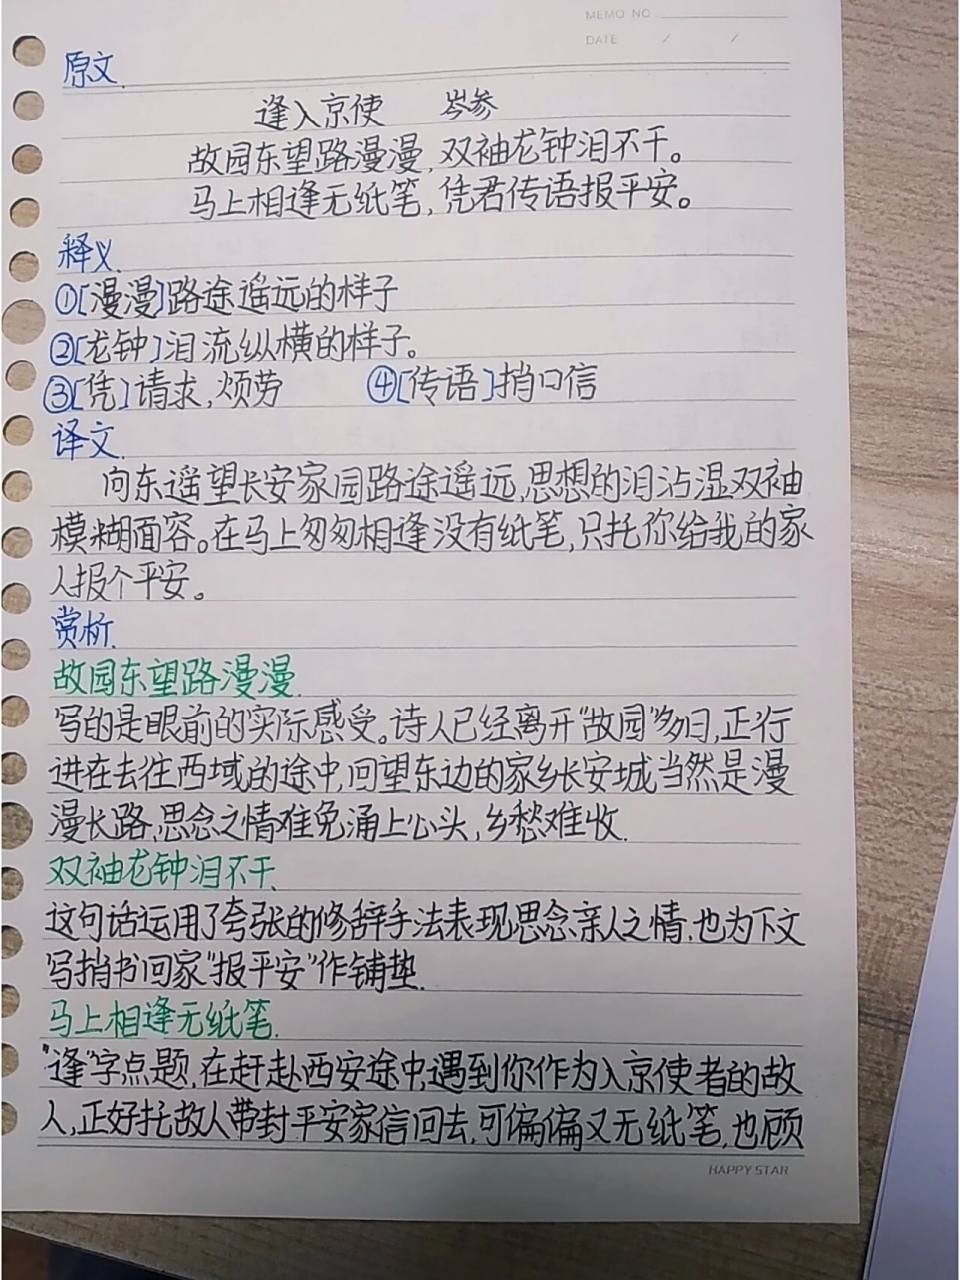 MEMO NO
DATE / /
原文.
逢入京使 岑参
故园东望路漫漫,双袖龙钟泪不干。
马上相逢无纸笔,凭君传语报平安。
释义.
①[漫漫]路途遥远的样子
②[龙钟]泪流纵横的样子。
③[凭]请求,烦劳 ④[传语]捎口信
译文.
向东遥望长安家园路途遥远,思想的泪沾湿双袖
模糊面容。在马上匆匆相逢没有纸笔,只托你给我的家
人报个平安。
赏析.
故园东望路漫漫.
写的是眼前的实际感受。诗人已经离开“故园”多日,正行
进在去往西域的途中,回望东边的家乡长安城当然是漫
漫长路,思念之情难免涌上心头,乡愁难收.
双袖龙钟泪不干.
这句话运用了夸张的修辞手法表现思念亲人之情.也为下文
写捎书回家“报平安”作铺垫.
马上相逢无纸笔.
“逢”字点题,在赶赴西安途中,遇到你作为入京使者的故
人,正好托故人带封平安家信回去,可偏偏又无纸笔,也顾
HAPPY STAR